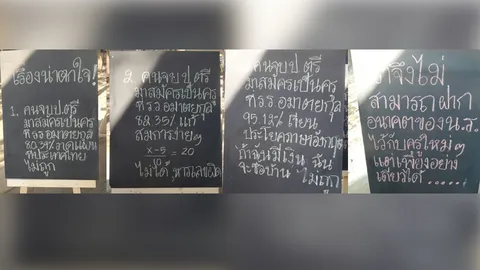 เรื่องน่าตกใจ!
1. คนจบป.ตรี
มาสมัครเป็นครู
ที่รร.อมาตยกุล
80.35%
ประเทศไทย
ไม่ถูก
2. คนจบป.ตรี
มาสมัครเป็นครู
ที่รร.อมาตยกุล
82.35% แก้
สมการง่ายๆ
x-5
10
= 20
ไม่ได้
คนจบป.ตรี
มาสมัครเป็นครู
ที่รร.อมาตยกุล
95.12% เขียน
ประโยคภาษาอังกฤษ
"ถ้าฉันมีเงิน ฉัน
จะซื้อบ้าน" ไม่ถูก
เราจึงไม่
สามารถฝาก
อนาคตของน.ร.
ไว้กับครูใหม่ๆ
แต่เพียงอย่าง
เดียวได้......